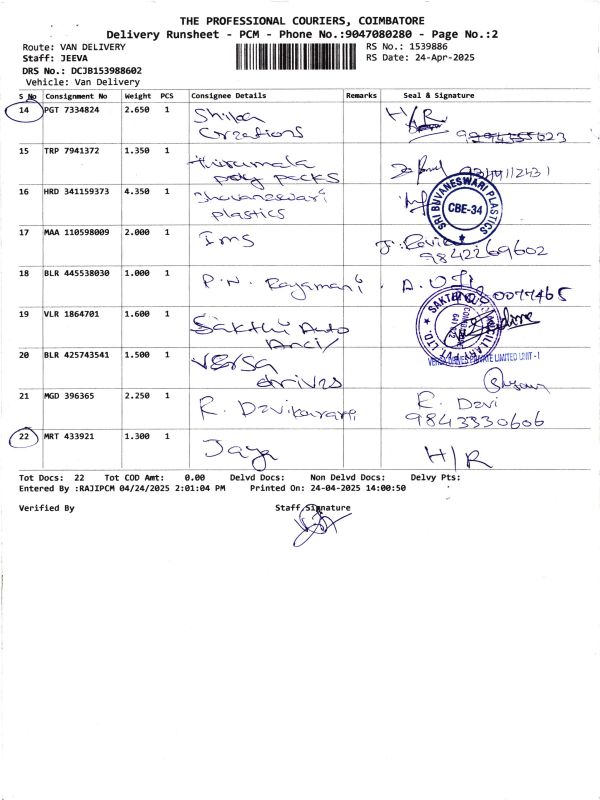 THE PROFESSIONAL COURIERS, COIMBATORE
Delivery Runsheet - PCM - Phone No.:9047080280 - Page No.:2
Route: VAN DELIVERY
RS No.: 1539886
Staff: JEEVA
RS Date: 24-Apr-2025
DRS No.: DCJB153988602
Vehicle: Van Delivery
S No Consignment No Weight PCS Consignee Details Remarks Seal & Signature
14 PGT 7334824 2.650 1 Shilpa H/R
Creations
15 TRP 7941372 1.350 1 thirumala
poly packs
16 HRD 341159373 4.350 1 Bhuvaneswari
plastics
SRI BUVANESWARI PLASTICS
CBE-34
17 MAA 110598009 2.000 1 Ims
9842269602
18 BLR 445538030 1.000 1 P.N. Rajamani
19 VLR 1864701 1.600 1 Sakthi Auto
Ancil
20 BLR 425743541 1.500 1 Versa
drives
VERSA DRIVES PRIVATE LIMITED UNIT-I
21 MGD 396365 2.250 1 R. Devikarani R. Devi
9843330606
22 MRT 433921 1.300 1 Jaya H/R
Tot Docs: 22 Tot COD Amt: 0.00 Delvd Docs: Non Delvd Docs: Delvy Pts:
Entered By :RAJIPCM 04/24/2025 2:01:04 PM Printed On: 24-04-2025 14:00:50
Verified By Staff Signature